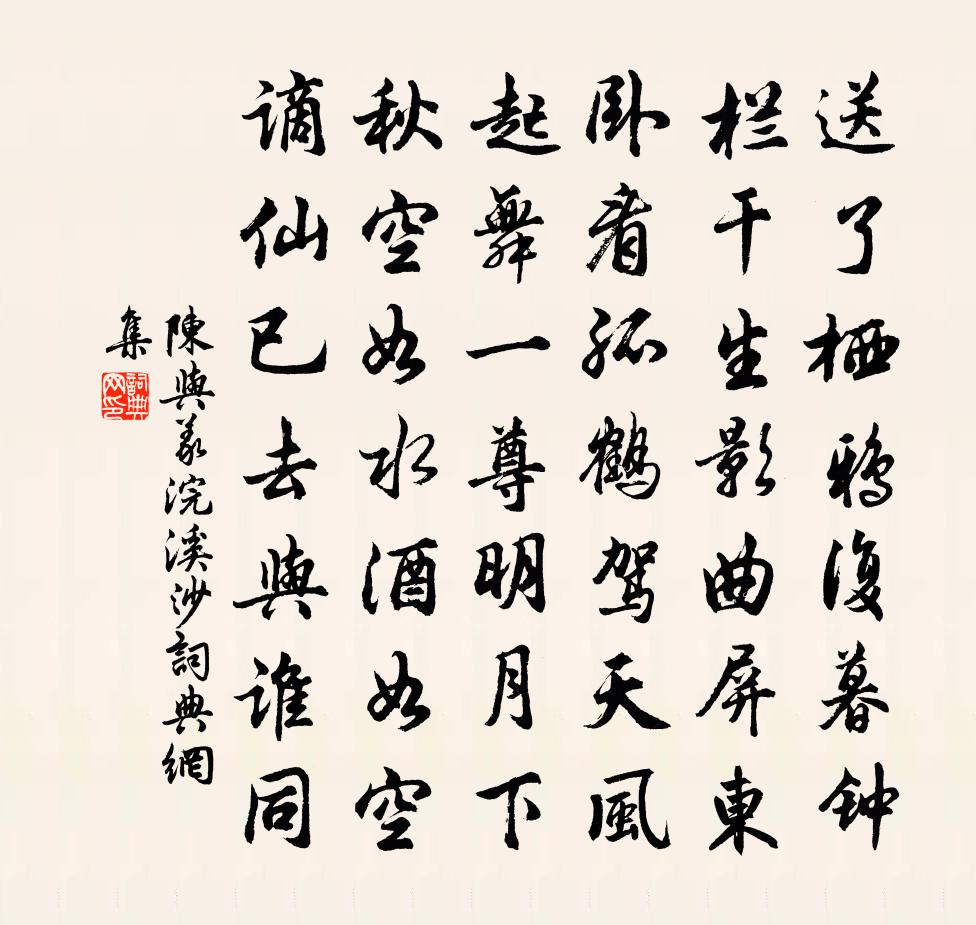 送了栖鸦復暮钟
栏干生影曲屏東
卧看孤鶴驾天風
起舞一尊明月下
秋空如水酒如空
谪仙已去與谁同
陳與義浣溪沙詞典網
集
詞典
网印